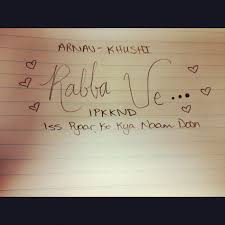 ARNAV - KHUSHI
Rabba Ve...
IPKKND
Iss Pyaar Ko Kya Naam Doon